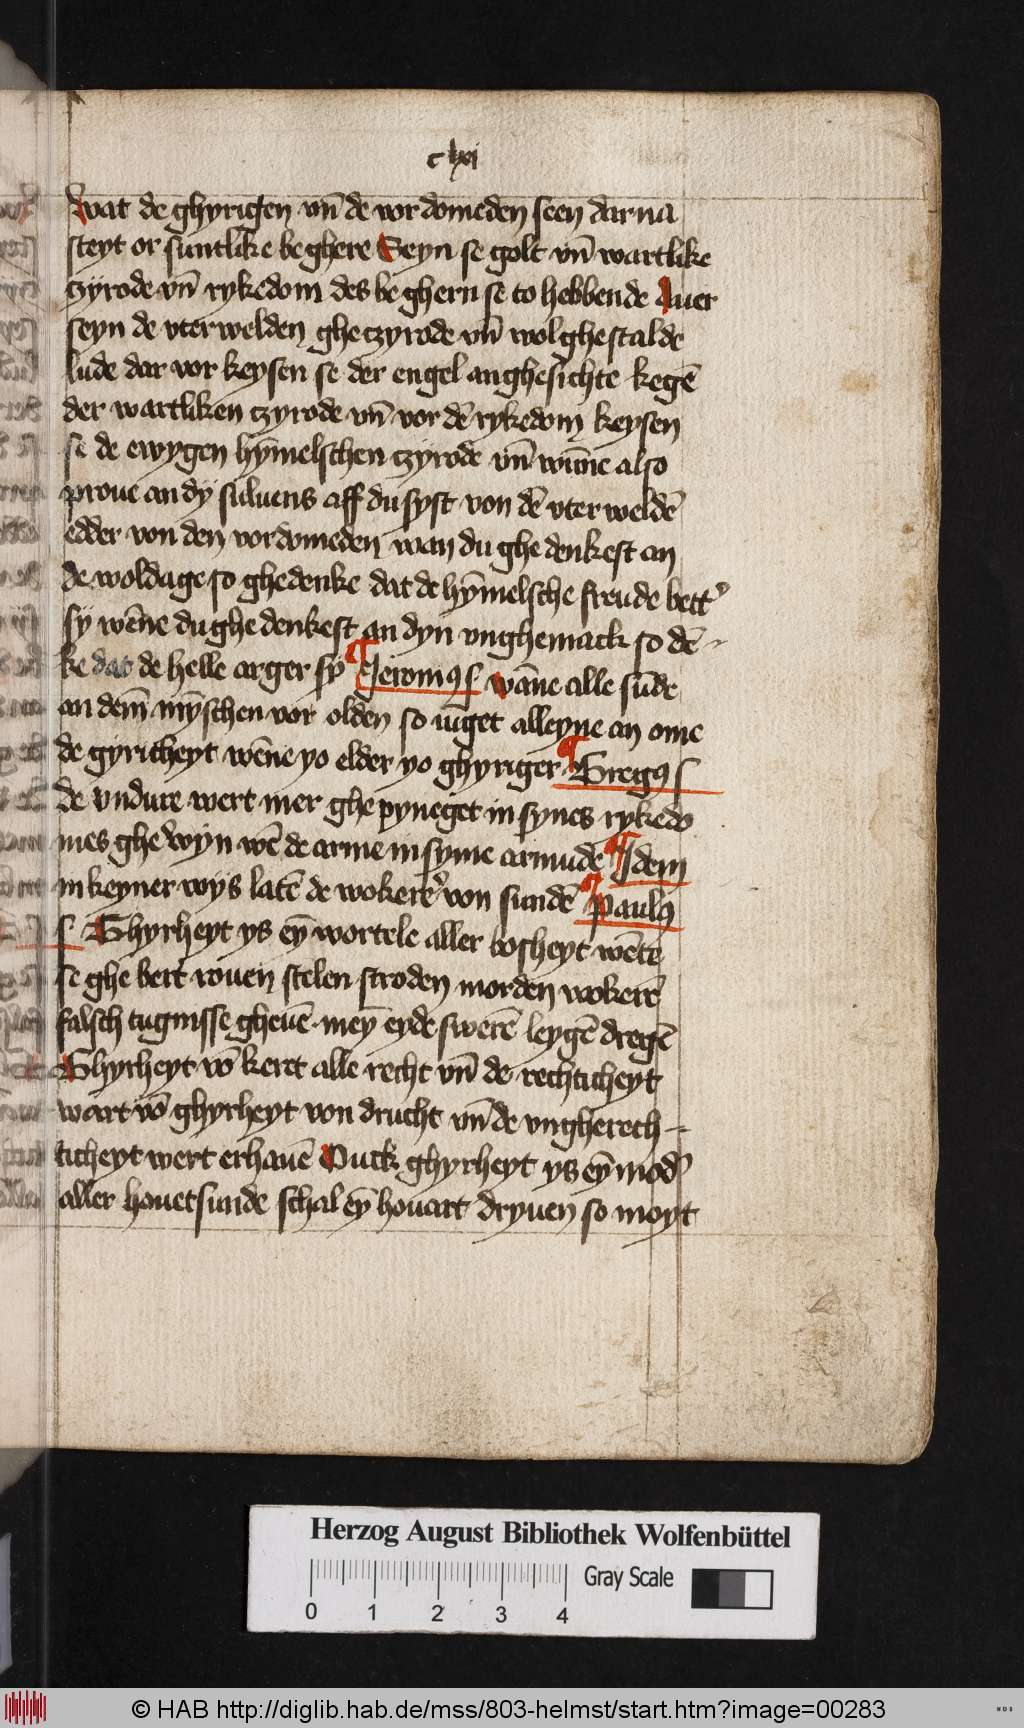 c lxvi
Wat de ghyrigen vn̄ de vordomeden seen darna
steyt or suntlike beghere Seyn se golt vn̄ wartlike
czyrode vn̄ rykedom des beghern se to hebbende Auer
seyn de vterwelden gheczyrode vn̄ wolghestalde
lude dar vor keysen se der engel anghesichte kegē
der wartliken czyrode vn̄ vor dē rykedom keysen
se de ewygen hȳmelschen czyrode vn̄ wūne also
proue an dy suluens aff du syst von dē vterweldē
edder von den vordomeden wan du ghedenkest an
de woldage so ghedenke dat de hȳmelsche freude bett'
sy wēne du ghedenkest an dyn vnghemack so dē-
ke dat de helle arger sy ¶ Jeronim9 s wāne alle sūde
an dem̄ mȳschen vor olden so iuget alleyne an ome
de gyricheyt wēne yo elder yo ghyriger ¶ Greg9 s
de vndure wert mer ghepyneget in synes rykedo
mes ghewyn wē de arme in syme armude ¶ Jdem
in keyner wys latē de wokerer' von sundē ¶ Paul9
s Ghyrheyt ys eȳ wortele aller bosheyt wēte
se ghebert rouen stelen stroden morden wokerē
falsch tugnisse gheuē meȳ eyde swerē leygē dregē
Ghyrheyt vō keret alle recht vn̄ de rechticheyt
wart vō ghyrheyt von drucht vn̄ de vngherech-
ticheyt wert erhauē Ouck ghyrheyt ys eȳ mod'
aller houetsunde schal eȳ houart dryuen so moyt
Herzog August Bibliothek Wolfenbüttel
Gray Scale
0 1 2 3 4
© HAB http://diglib.hab.de/mss/803-helmst/start.htm?image=00283